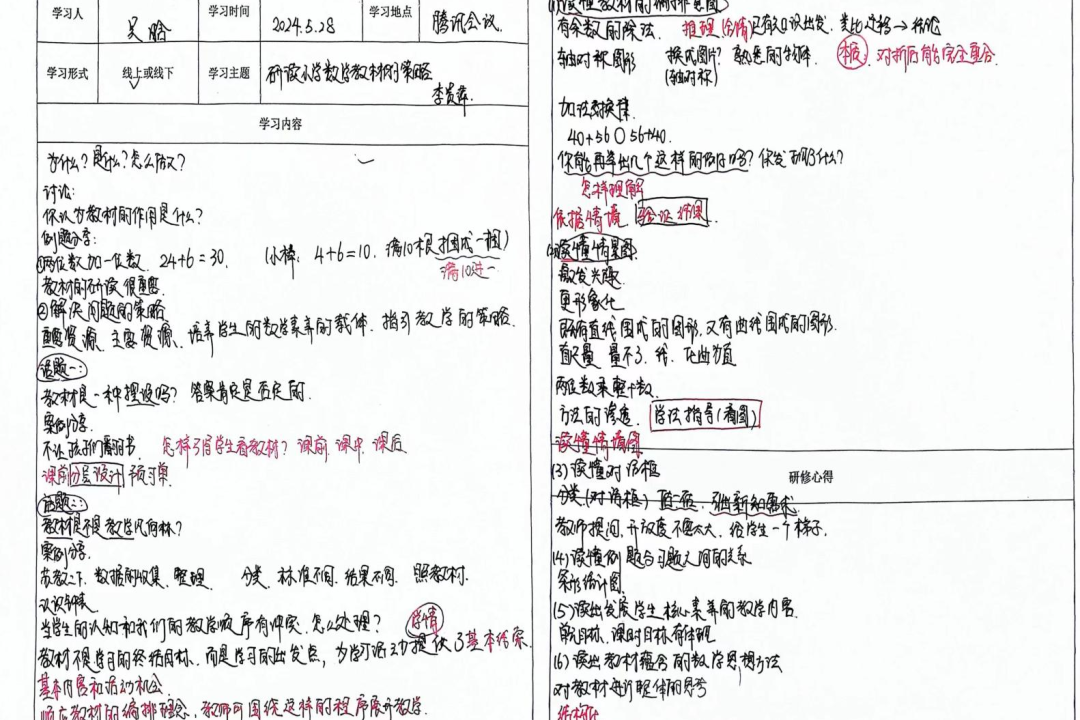 学习人
吴晗
学习时间
2024.5.28
学习地点
腾讯会议.
学习形式
线上或线下
学习主题
研读小学数学教材的策略
李贵萍.
学习内容
为什么? 是什么? 怎么做?
讨论:
你认为教材的作用是什么?
例题分享:
①两位数加一位数. 24+6=30. (小棒: 4+6=10. 满10根捆成一捆)
满10进一
教材的研读很重要.
②解决问题的策略
重要资源、主要资源、培养学生的数学素养的载体、指引教学的策略.
话题一:
教材是一种摆设吗? 答案肯定是否定的.
案例分享.
不让孩子们翻书. 怎样引导学生看教材? 课前. 课中. 课后
课前分层设计 预习单.
话题二:
教材是不是教学风向标?
案例分享.
苏教二下. 数据的收集、整理. 分类. 标准不同. 结果不同. 照教材.
认识钟表.
当学生的认知和我们的教学顺序有冲突. 怎么处理? 学情
教材不是学习的终结目标. 而是学习的出发点, 为学习活动提供了基本结案.
基本内容和活动机会.
顺应教材的编排理念, 教师可围绕这样的程序展开教学.
(1)读懂教材的编排意图
有余数的除法. 推理
轴对称图形 换成图片? 熟悉的物体. 对折后能完全重合.
(轴对称)
加法交换律.
40+56○56+40.
你能再举出几个这样的例子吗? 你发现了什么?
怎样理解
依据情境. 验证猜想.
读懂情景图.
激发兴趣
更形象化
既有直线围成的图形. 又有曲线围成的图形.
直尺量 量不了. 线. 化曲为直
两位数乘整十数.
方法的渗透. 学法指导(看图)
读懂情境图
(3)读懂对话框
研修心得
分类(对话框) 引出新知需求.
教师提问, 开放度不要太大. 给学生一个梯子.
(4)读懂例题与习题之间的关系
条形统计图.
(5)读出发展学生核心素养的教学内容.
单元目标、课时目标有体现
(6)读出教材蕴含的数学思想方法
对教材进行整体的思考
结构化